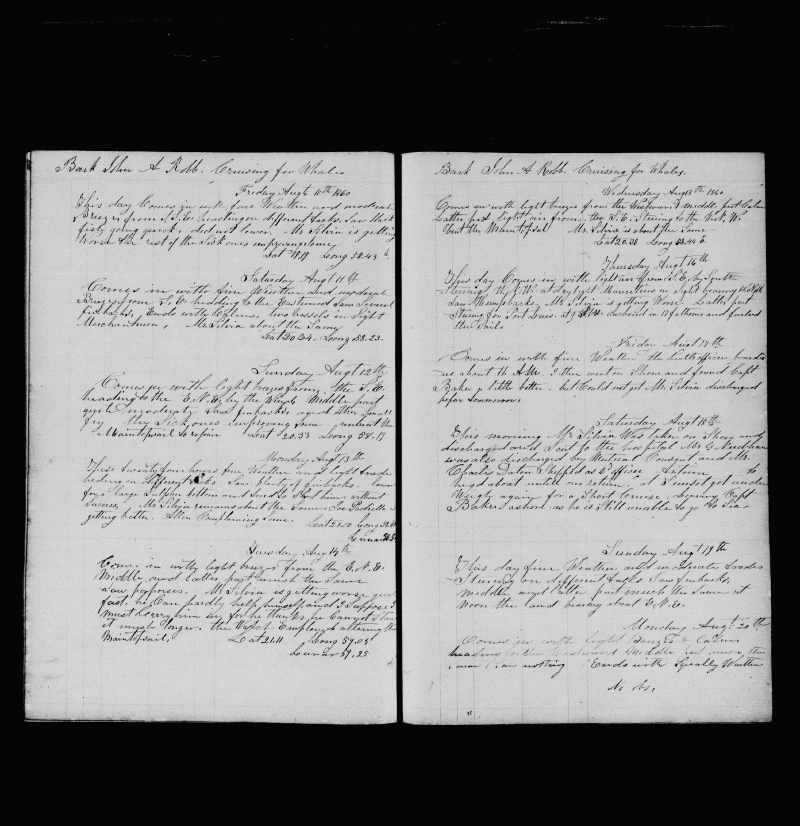 Bark John A Robb. Cruising for Whales
Friday Augt 10th 1860
This day Comes in with fine Weather and moderate
Breezes from S.E. heading on different tacks, Saw black
fish going quick, did not lower. Mr Silvia is getting
Worse the rest of the Sick ones improving some
Lat 19.19 Long 58.43 E.
Saturday Augt 11th
Comes in with fine Weather and moderate
Breezes from S.E. heading to the Eastward Saw Several
finbacks, Ends with Calms, two vessels in Sight
Merchantmen, Mr Silvia about the Same
Lat 20.24. Long 58.23.
Sunday Augt 12th
Comes in with light breezes from the S.E.
heading to the E.N.E. by the Wind Middle part
quite moderate Saw finbacks and other small
fry the Sick ones improving some unbent the
Maintopsail to repair Lat 20.53 Long 58.19
Monday Augt 13th
These twenty four hours fine Weather and light trades
heading on different tacks Saw plenty of finbacks.
for a large Sulphur bottom and tried to Shoot him without
Success, Mr Silvia remains about the Same Joe is
getting better. Allen Complaining Some, Lat 21.10 Long
Lunar
Tuesday Aug 14th
Comes in with light breezes from the E.N.E.
Middle and latter part much the Same
Saw porpoises. Mr Silvia is getting worse quite
fast. he Can hardly help himself, and I suppose I
must carry him in, for he thinks he Cannot Stand
it much longer, the Watch Employed altering the
Maintopsail, Lat 21.11 Long 59.05
Lunar 59.25
Bark John A Robb. Cruising for Whales.
Wednesday Aug 15th 1860
Comes in with light breezes from the Middle part Calm
Latter part light air from the S.E. Steering to the
bent the Maintopsail Mr Silvia is about the Same
Lat 20.28 Long 58.44 E.
Thursday Augt 16th
This day Comes in with light air from S.E. by South
Steering W.S.W. at daylight Mauritius in Sight bearing
Saw Humpbacks, Mr Silvia is getting Worse. Latter part
Steering for Port Louis. at 9 anchored in 17 fathoms and furled
the Sails.
Friday Augt 17th
Comes in with fine Weather the health officer boarded
us about 10 AM. I then went on Shore and found Capt
Baker a little better but Could not get Mr Silvia discharged
before tommorrow.
Saturday Augt 18th
This morning Mr Silvia Was taken on Shore and
discharged and Sent to the hospital Mr G Needham
was also discharged by Mutual Consent and Mr
Charles Shipped as 2d officer
lugd about until our return, at Sunset got under
Weigh again for a Short Cruise, leaving Capt
Baker ashore as he is Still unable to go to Sea
Sunday Augt 19th
This day fine Weather and moderate trades
Steering on different tacks Saw finbacks,
Middle and latter part much the Same at
Noon the land bearing about E.N.E
Monday Augt 20th
Comes in with light Breezes & Calms
heading to the Westward Middle part much the
same Saw nothing Ends with Squally Weather
No obs.